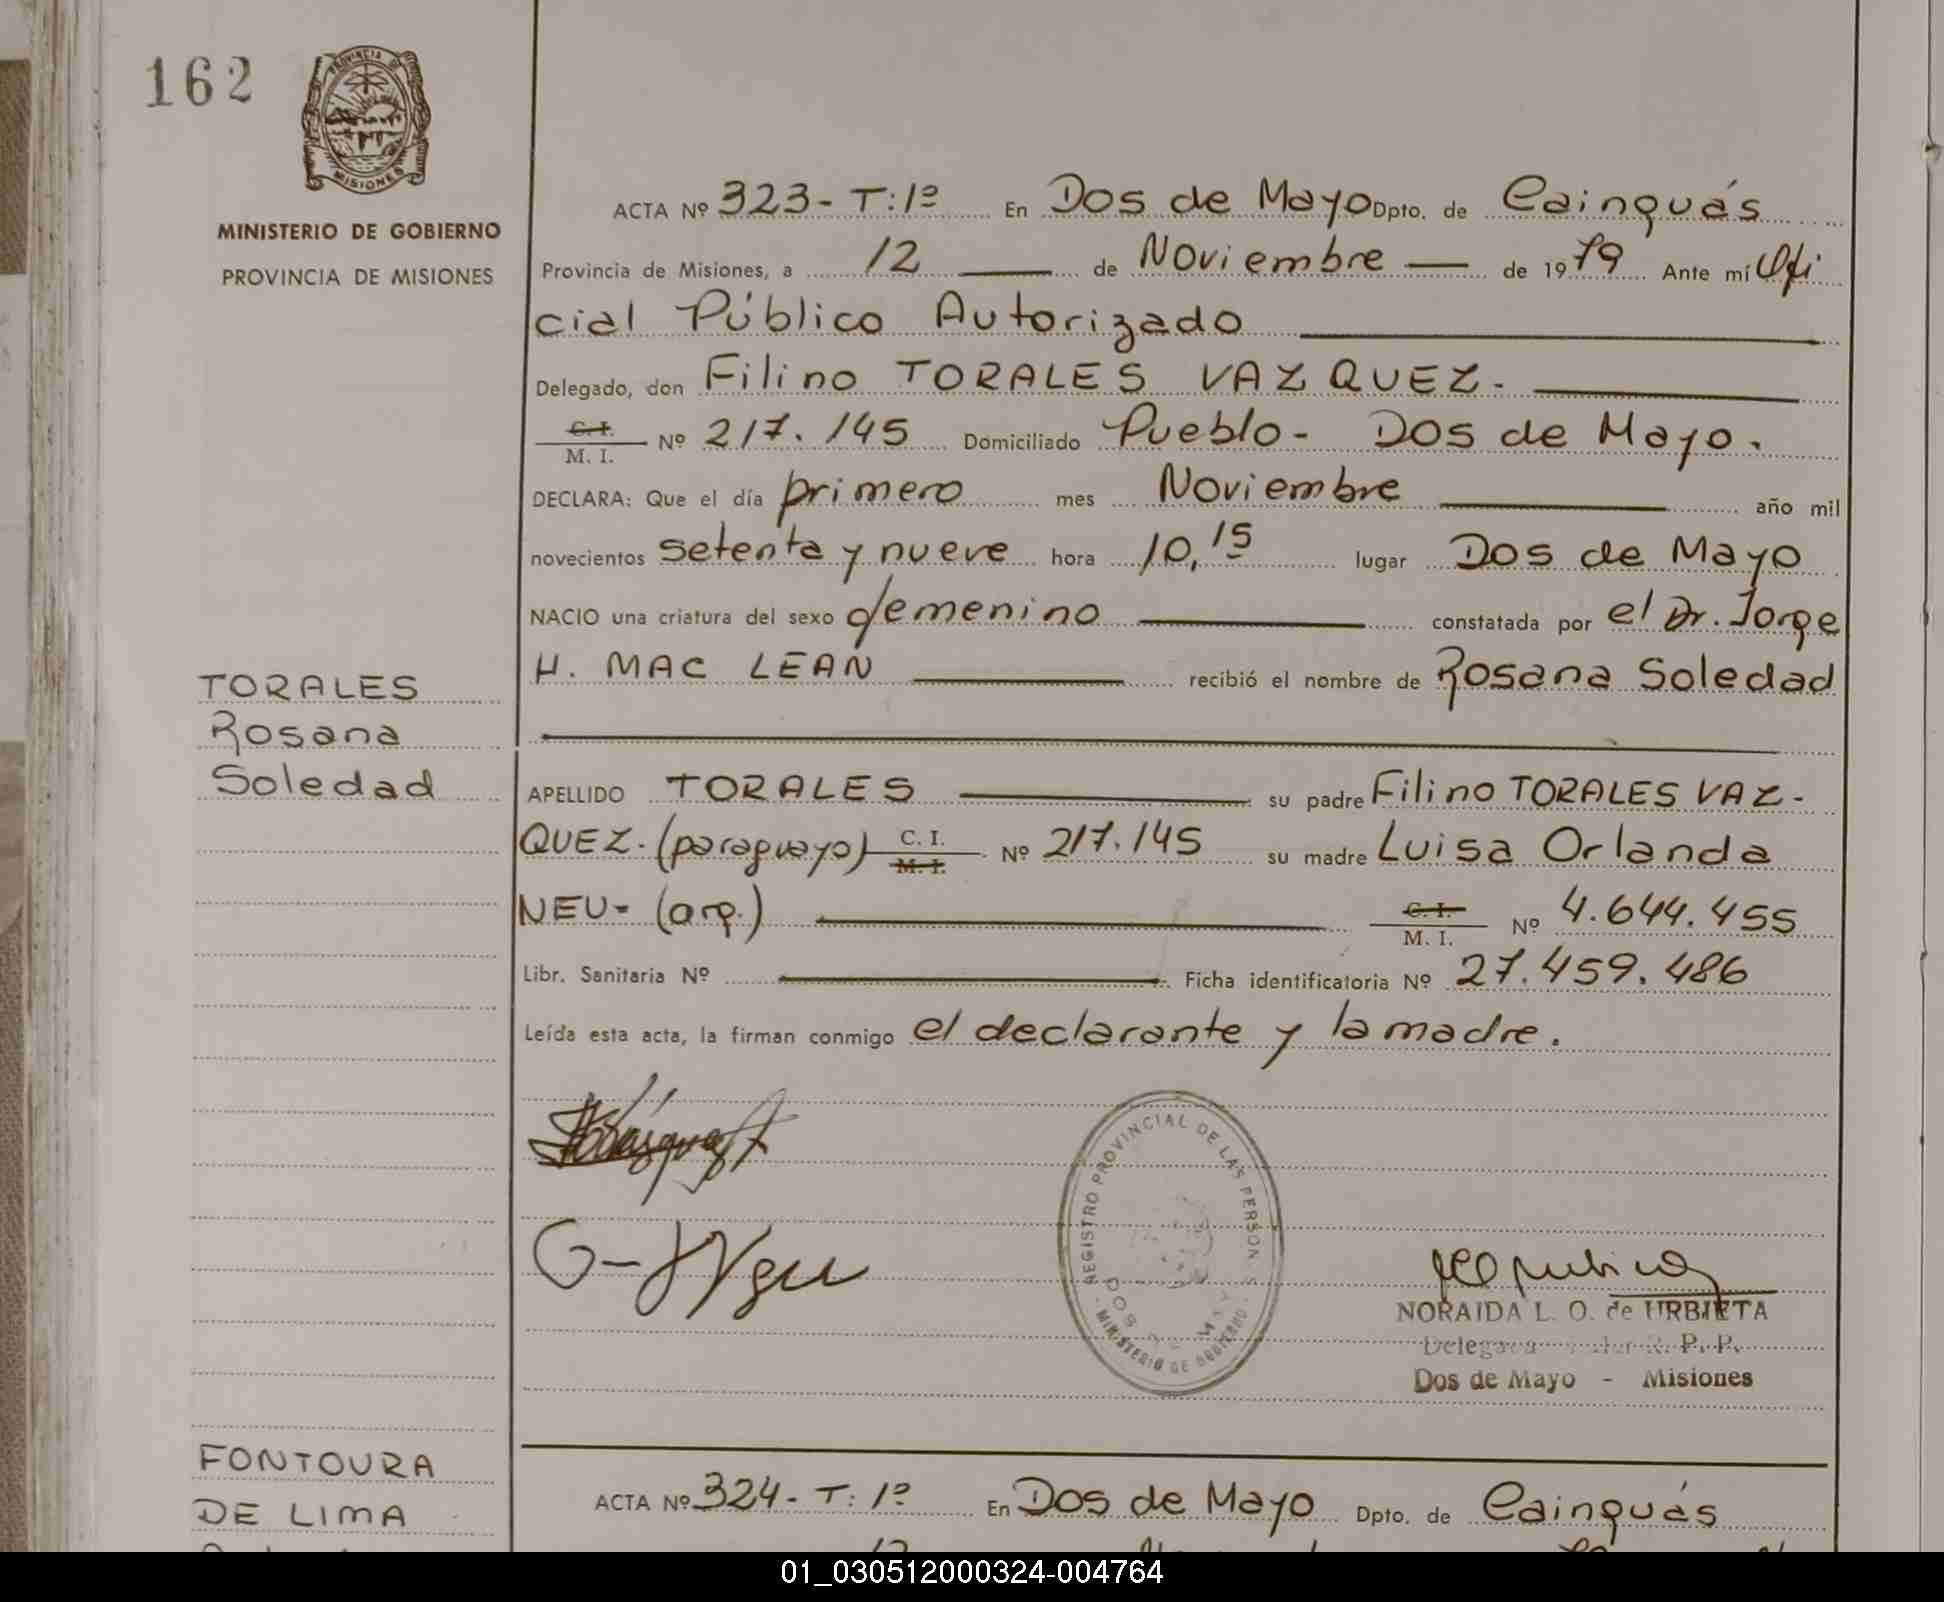 162
PROVINCIA DE
MISIONES
MINISTERIO DE GOBIERNO
PROVINCIA DE MISIONES
ACTA Nº 323- T:1º En Dos de Mayo Dpto. de Cainguás
Provincia de Misiones, a 12 de Noviembre de 1979 Ante mí Ofi
cial Público Autorizado
Delegado, don Filino TORALES VAZQUEZ.
C. I. M. I. Nº 217.145 Domiciliado Pueblo- Dos de Mayo.
DECLARA: Que el día primero mes Noviembre año mil
novecientos setenta y nueve hora 10,15 lugar Dos de Mayo
NACIO una criatura del sexo femenino constatada por el Dr. Jorge
H. MAC LEAN recibió el nombre de Rosana Soledad
TORALES
Rosana
Soledad
APELLIDO TORALES su padre Filino TORALES VAZ-
QUEZ. (paraguayo) C. I. M. I. Nº 217.145 su madre Luisa Orlanda
NEU- (arg.) C. I. M. I. Nº 4.644.455
Libr. Sanitaria Nº Ficha identificatoria Nº 27.459.486
Leída esta acta, la firman conmigo el declarante y la madre.
REGISTRO PROVINCIAL DE LAS PERSONAS
MINISTERIO DE GOBIERNO
DOS DE MAYO
NORAIDA L. O. de URBIETA
R. P. P.
Dos de Mayo - Misiones
FONTOURA
DE LIMA
ACTA Nº 324- T: 1º En Dos de Mayo Dpto. de Cainguás
01_030512000324-004764